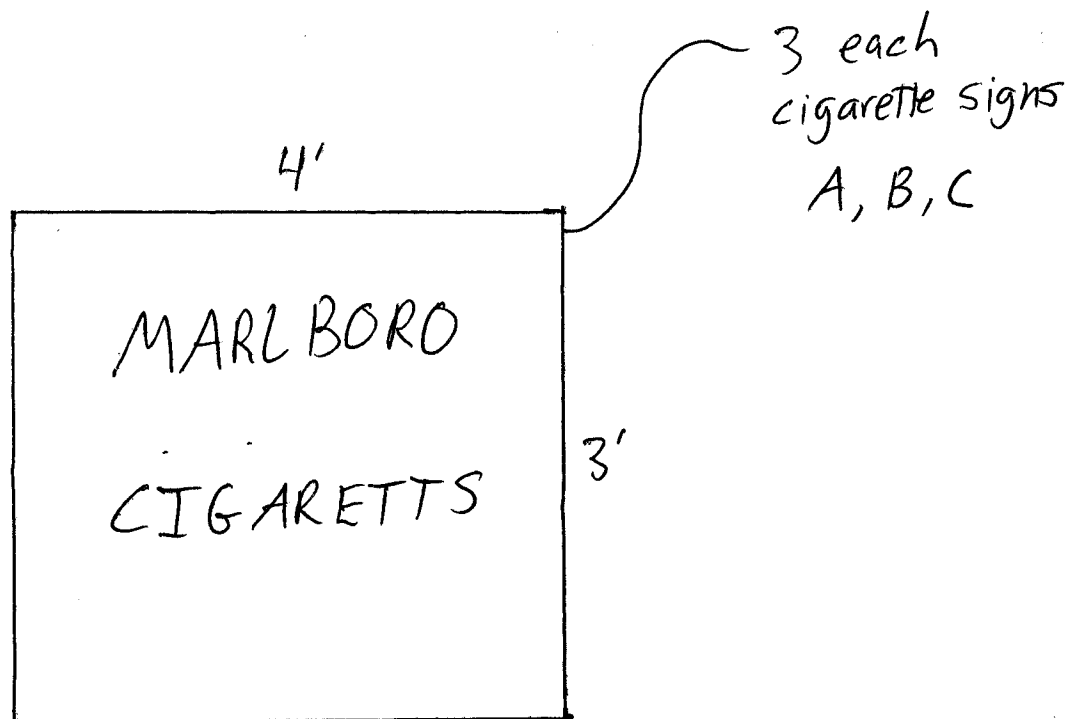 3 each
cigarette signs
A, B, C
4'
MARLBORO
3'
CIGARETTS